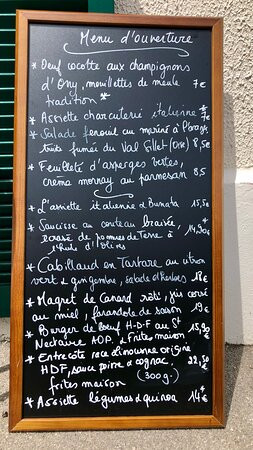 Menu d'ouverture
* Oeuf cocotte aux champignons
d'Orry, mouillettes de meule
tradition * 7€
* Assiette charcuterie italienne 7€
* Salade fenouil au mariné à l'orange,
truite fumée du Val Gillet (Oise) 8,5€
* Feuilleté d'asperges vertes,
crème mornay au parmesan 8,5
* L'assiette italienne & Burrata 15,5€
* Saucisse au couteau braisée,
écrasé de pommes de Terre à 14,90€
l'huile d'Olive
* Cabillaud en Tartare au citron
vert & gingembre, salade d'herbes 18€
* Magret de Canard rôti, jus corsé
au miel, farandole de saison 19€
* Burger de Boeuf H-D-F au St
Nectaire AOP & frites maison 15,90€
* Entrecôte race Limousine origine
HDF, sauce poivre & cognac, 22,50€
frites maison (300g)
* Assiette légumes & quinoa 14€